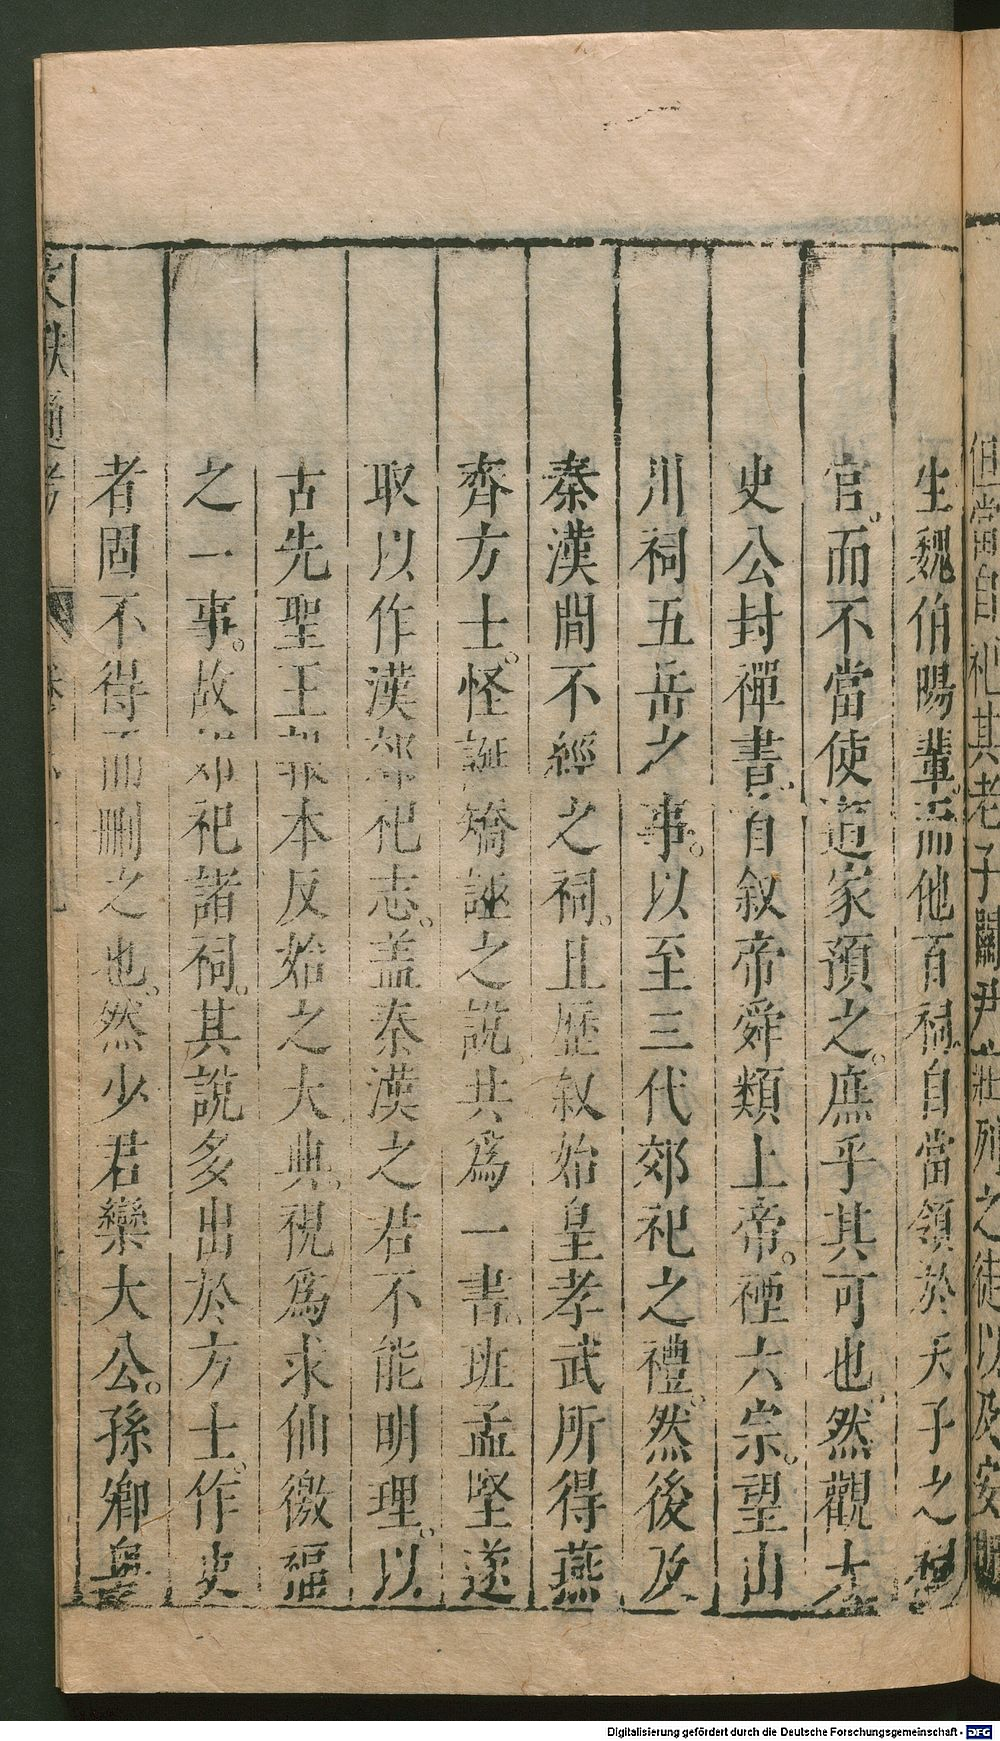 但當自祀其老子關尹莊列之徒以及安
生魏伯陽輩而他百祠自當領於天子之祠
官。而不當使道家預之。庶乎其可也然觀太
史公封禪書自叙帝舜類上帝。禋六宗。望山
川祠五岳之事。以至三代郊祀之禮。然後及
秦漢間不經之祠。且歷叙始皇孝武所得燕
齊方士。怪誕矯誣之說。共爲一書。班孟堅遂
取以作漢郊祀志。盖秦漢之君不能明理。以
古先聖王報本反始之大典。視爲求仙徼福
之一事。故郊祀諸祠。其說多出於方士。作史
者固不得而刪之也。然少君欒大公。孫卿
文獻通考 卷
Digitalisierung gefördert durch die Deutsche Forschungsgemeinschaft - DFG